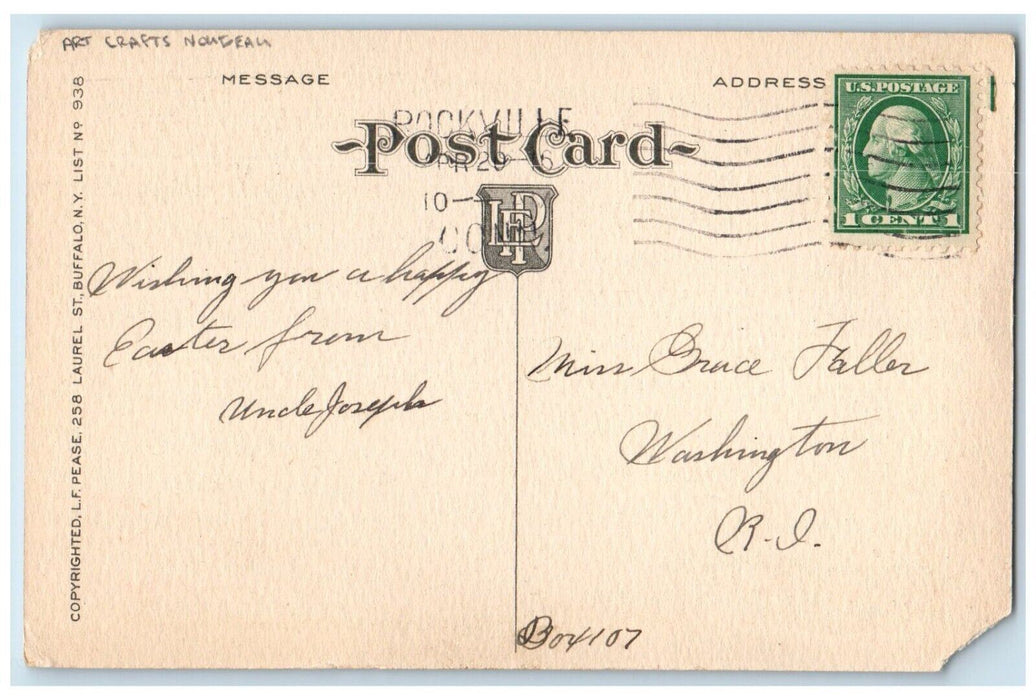 ART CRAFTS NOUVEAU
MESSAGE
ADDRESS
U.S.POSTAGE
1 CENT 1
ROCKVILLE
Post Card
APR 20
10—
CONN.
LFP
Wishing you a happy
Easter from
Uncle Joseph
Miss Grace Faller
Washington
R.I.
Box 107
COPYRIGHTED, L.F. PEASE, 258 LAUREL ST., BUFFALO, N.Y. LIST No 938